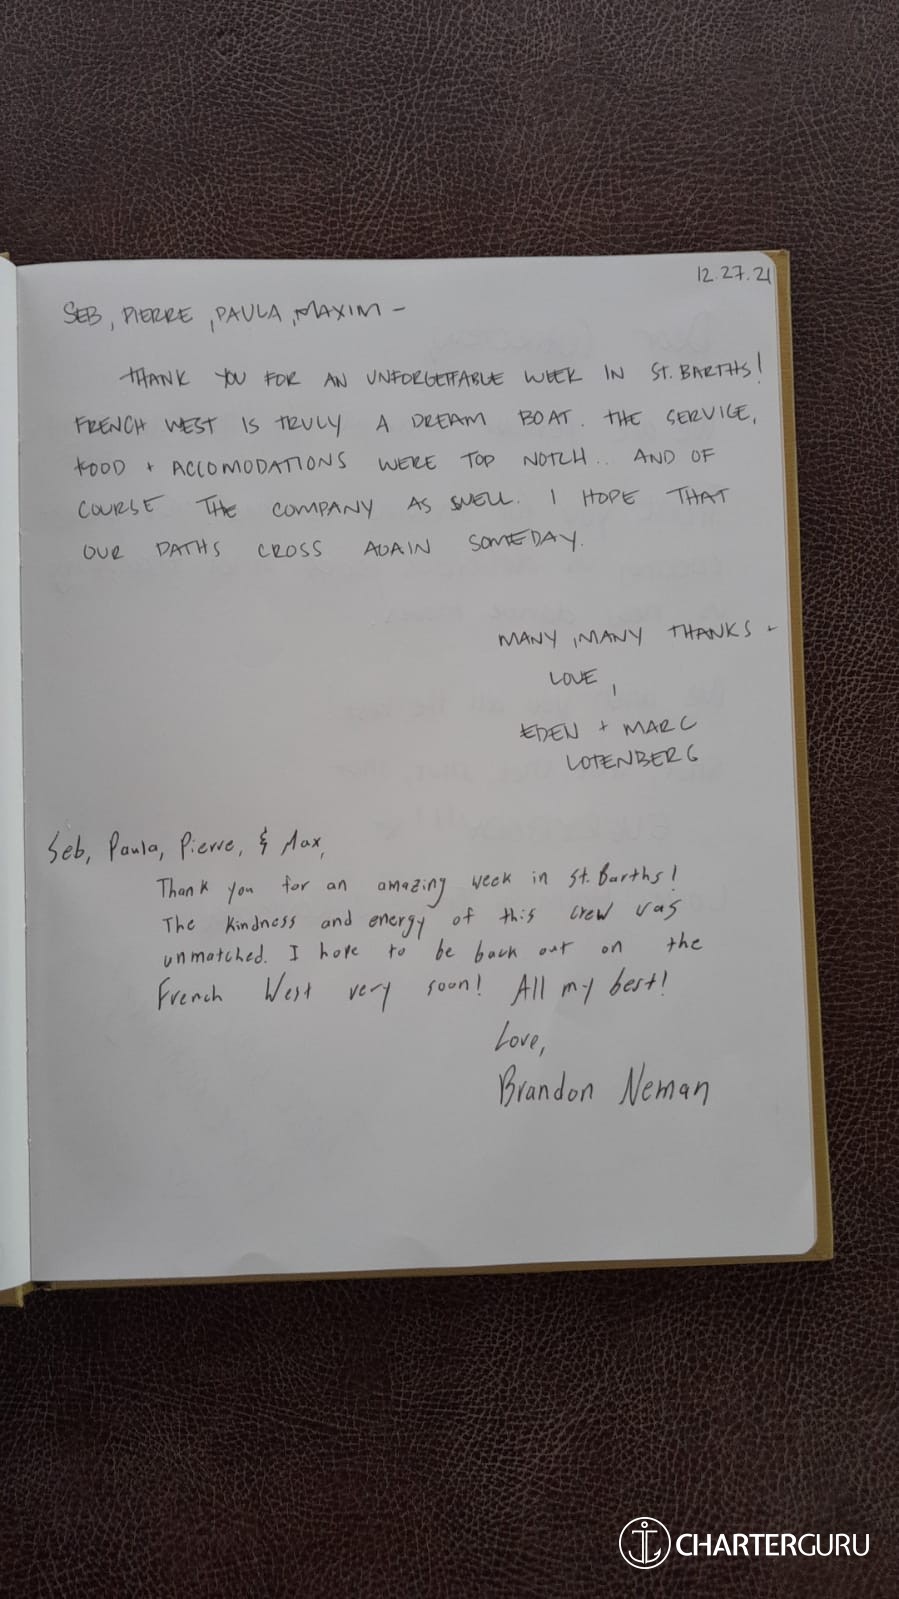 12.27.21
SEB, PIERRE, PAULA, MAXIM -
THANK YOU FOR AN UNFORGETTABLE WEEK IN ST. BARTHS!
FRENCH WEST IS TRULY A DREAM BOAT. THE SERVICE,
FOOD + ACCOMODATIONS WERE TOP NOTCH... AND OF
COURSE THE COMPANY AS WELL. I HOPE THAT
OUR PATHS CROSS AGAIN SOMEDAY.
MANY, MANY THANKS -
LOVE,
EDEN + MARC
LOTENBERG
Seb, Paula, Pierre, & Max,
Thank you for an amazing week in St. Barths!
The kindness and energy of this crew was
unmatched. I hope to be back out on the
French West very soon! All my best!
Love,
Brandon Neman
CHARTERGURU